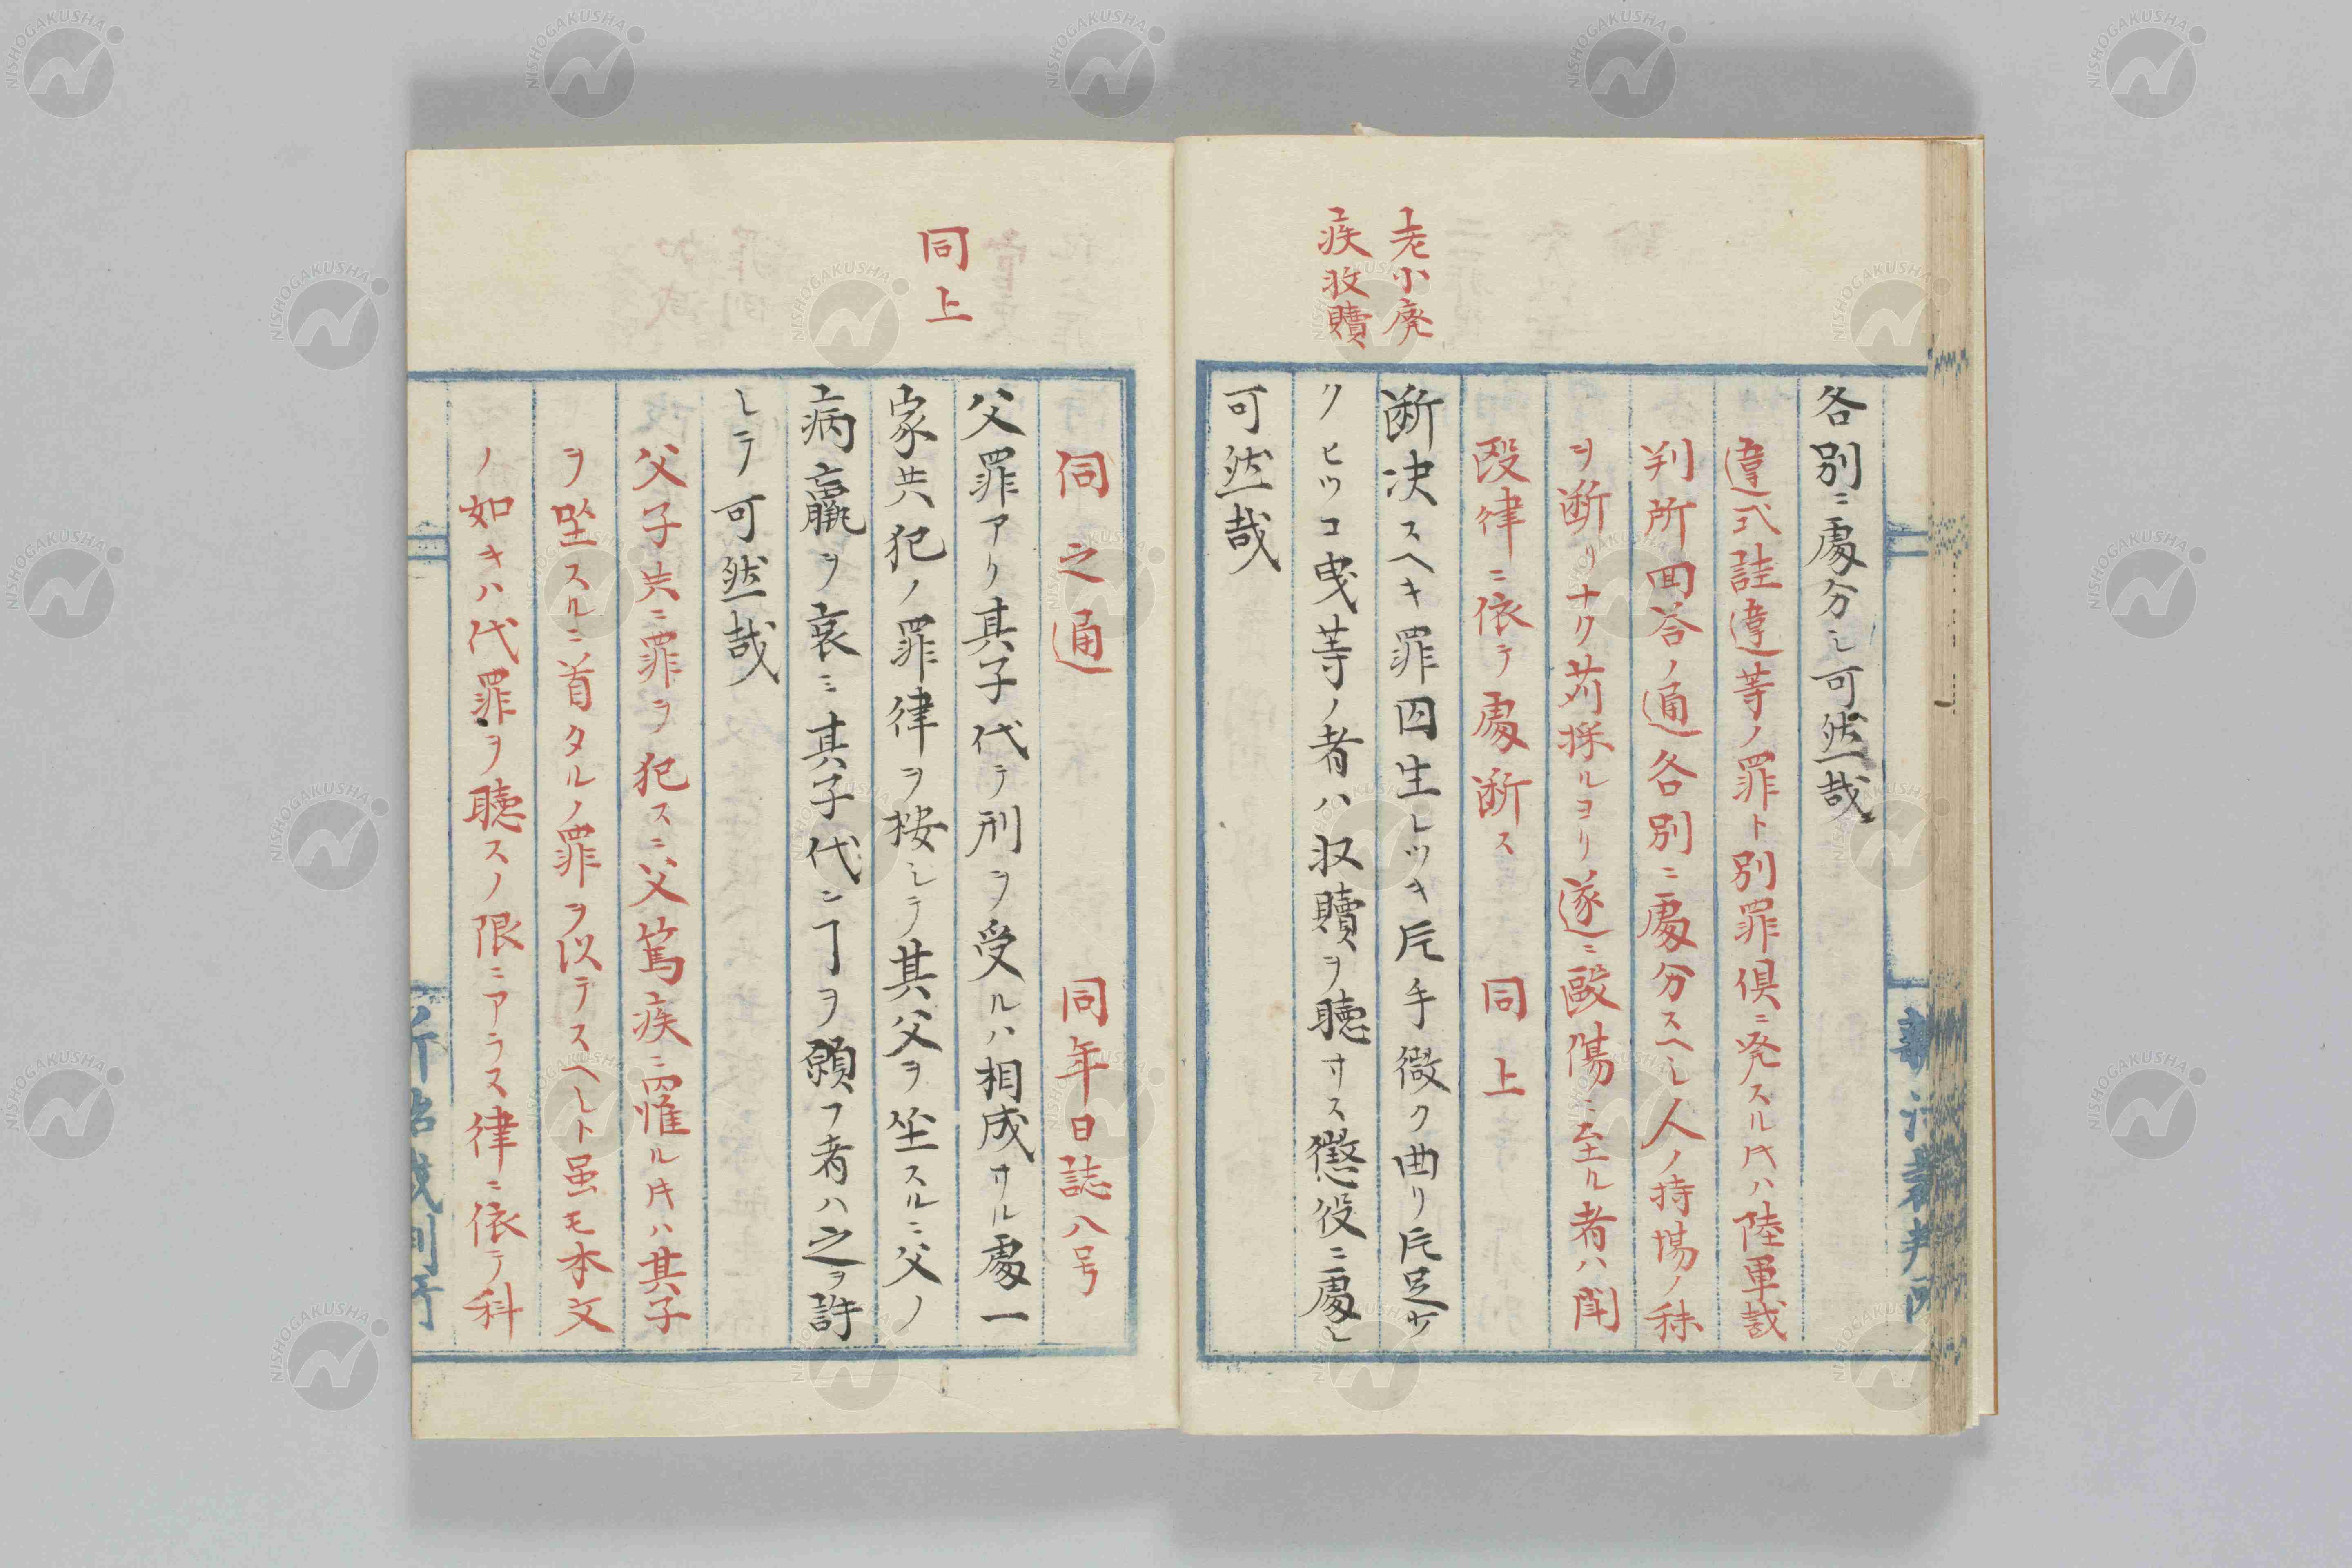 各別ニ處分シ可然哉
違式詿違等ノ罪ト別罪倶ニ発スル片ハ陸軍裁
判所回答ノ通各別ニ處分スヘシ人ノ持場ノ秣
ヲ断リナク苅採ルヨリ遂ニ毆傷ニ至ル者ハ闘
毆律ニ依テ處断ス 同上
老小廃
疾收贖
断决スヘキ罪囚生レツキ片手微ク曲リ片足少
クヒツコ曳等ノ者ハ収贖ヲ聴サス懲役ニ處シ
可然哉
伺之通 同年日誌八号
同上
父罪アリ其子代テ刑ヲ受ルハ相成サル處一
家共犯ノ罪律ヲ按シテ其父ヲ坐スルニ父ノ
病羸ヲ哀ミ其子代ンヿヲ願フ者ハ之ヲ許
シテ可然哉
父子共ニ罪ヲ犯スニ父篤疾ニ罹ル片ハ其子
ヲ坐スルニ首タルノ罪ヲ以テスヘシト虽モ本文
ノ如キハ代罪ヲ聴スノ限ニアラス律ニ依テ科
新治裁判所
NISHOGAKUSHA